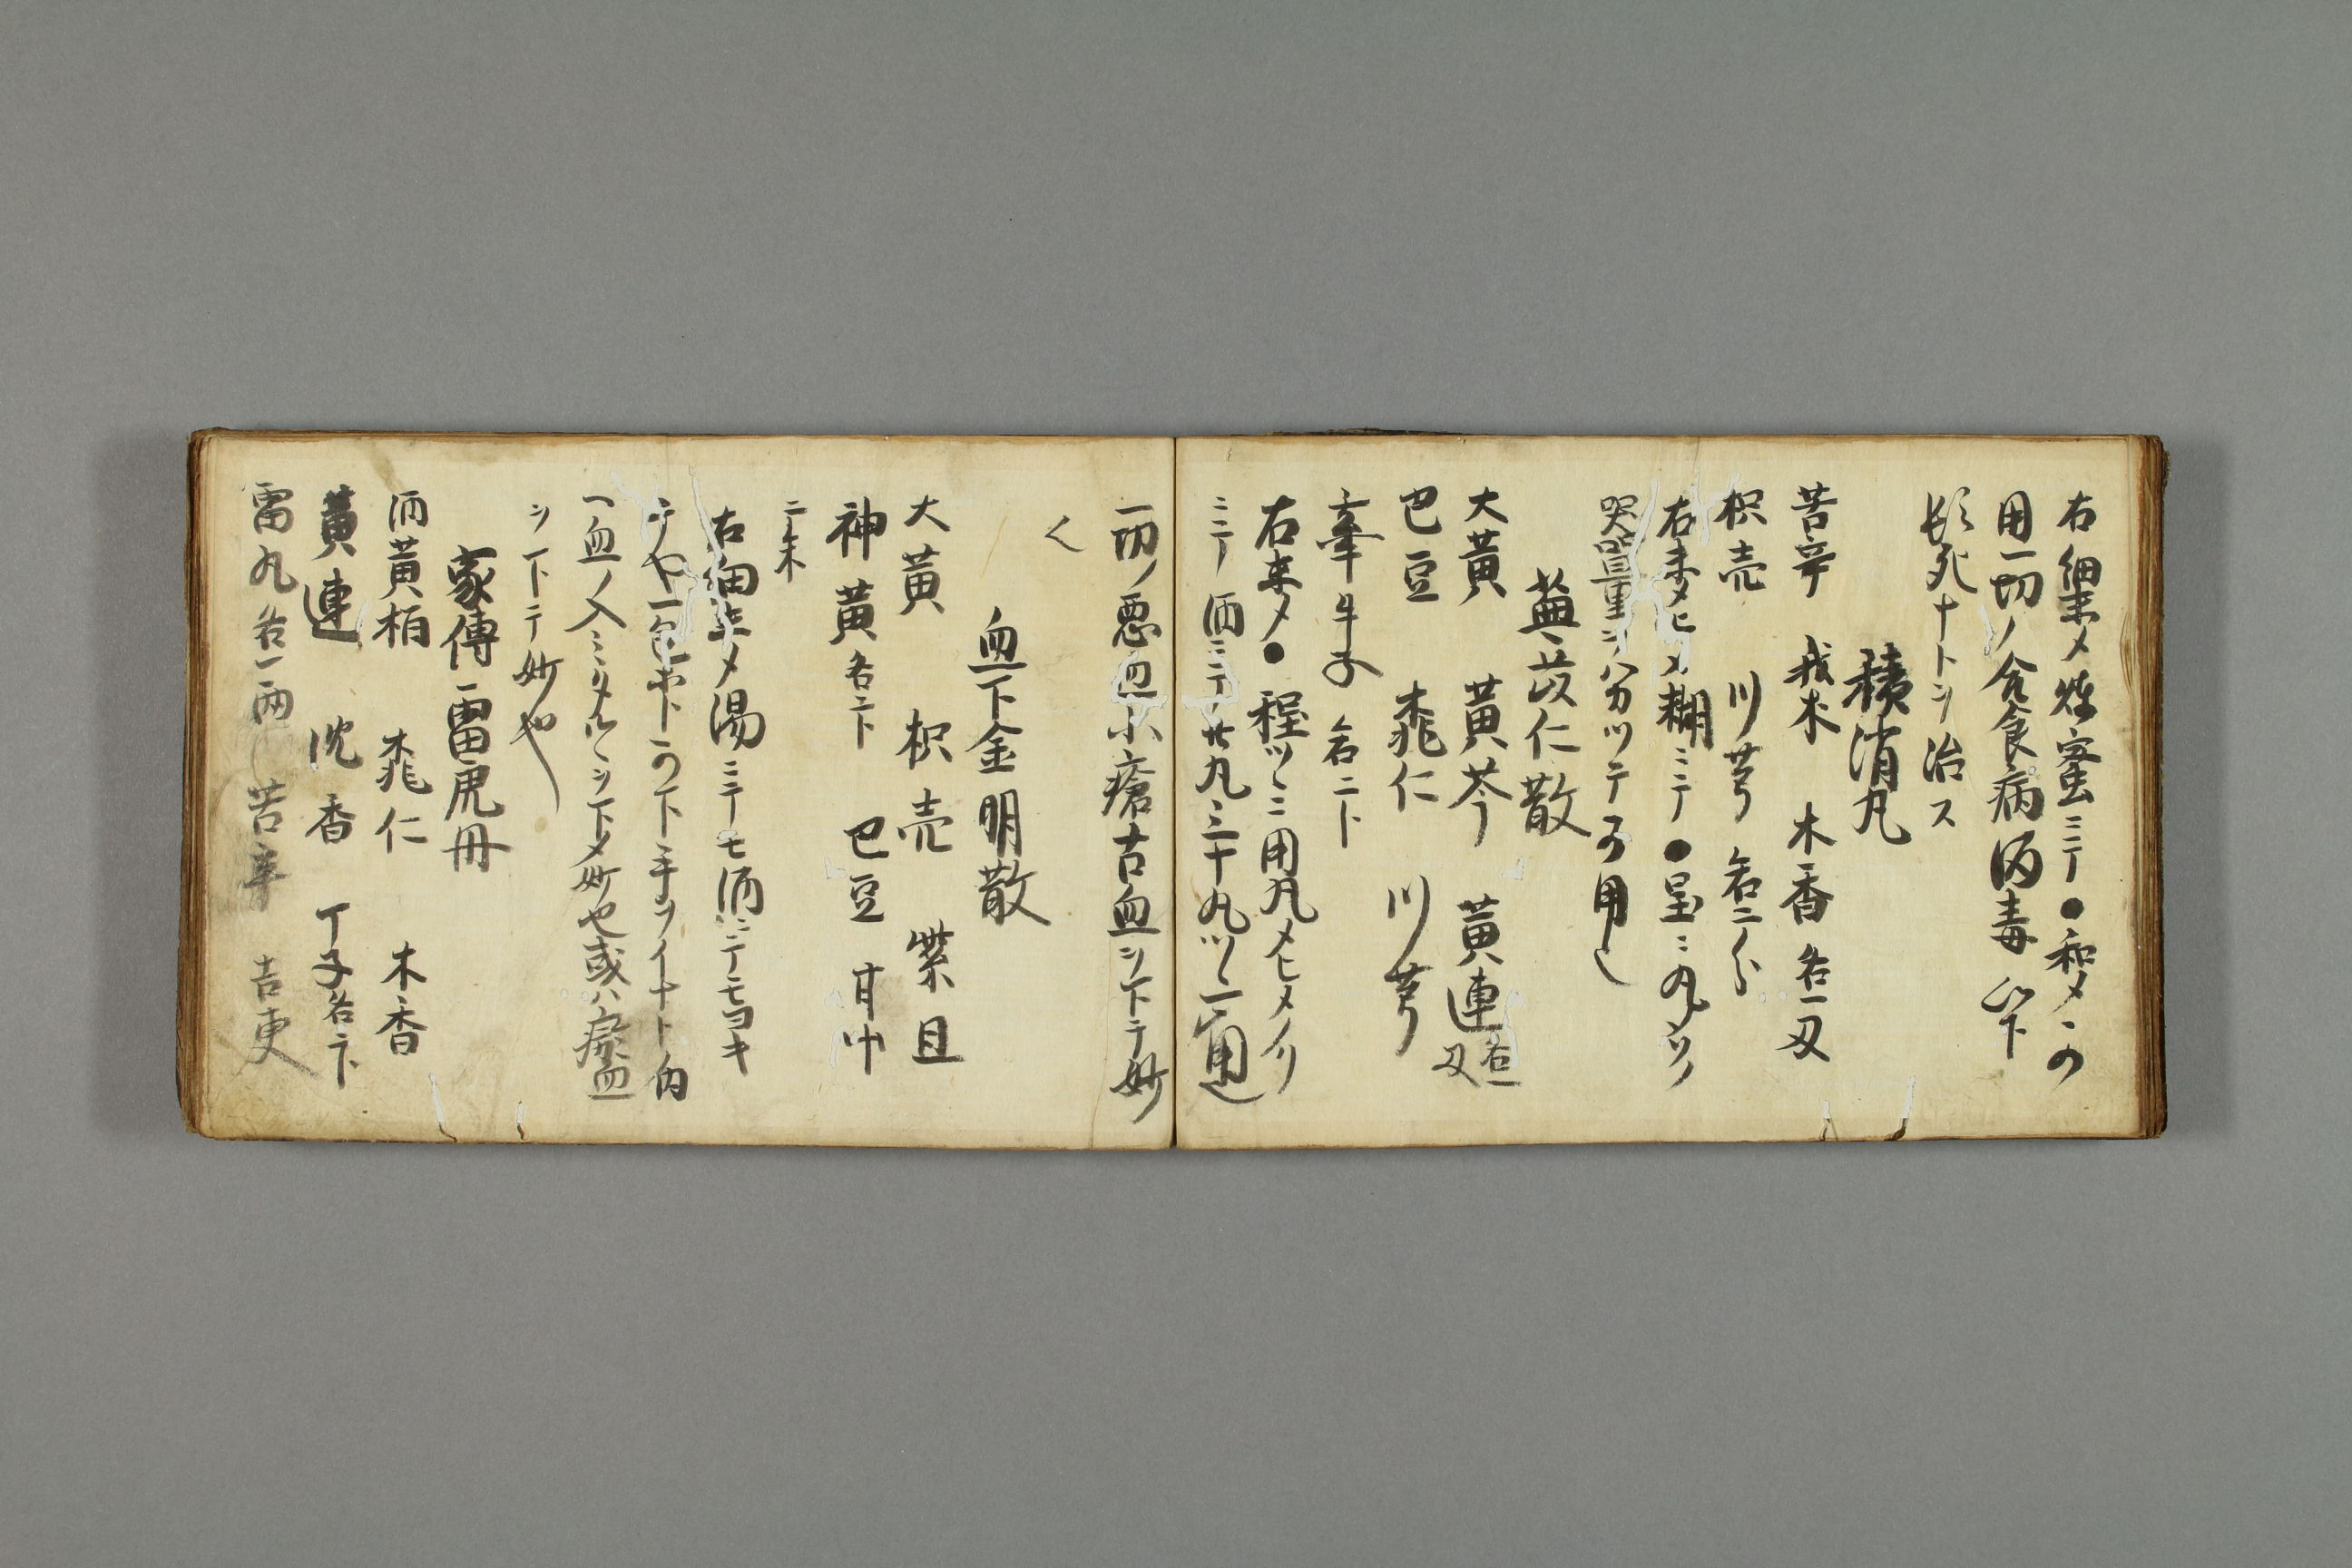 右細末メ煉蜜ニテ●和メ可
用一切ノ合食病酒毒以下
頓死ナトヲ治ス
積消丸
苦辛 我朮 木香各一叉
枳売 川芎 各二分
右末メヒメ糊ニテ●呈ニ丸ツヽ
器量ヲハカツテ可用
蓖苡仁散
大黄 黄芩 黄連各一叉
巴豆 桃仁 川芎
牽牛子 各二卜
右末メ● 程ツヽニ用凡メヒメノリ
ニテ酒ニテ廿丸三十丸ツヽ一通
一切ノ悪血 瘡古血ヲ下テ妙
く
血下金明散
大黄 枳売 柴且
神黄各二卜 巴豆 甘中
二朱
右細末メ湯ニテモ酒ニテモヨキ
テヤ一包ホト可下手ヲイトト内
ヘ血ノ入ミタルヽヲ下メ妙也或ハ瘀血
ヲ下テ妙也
家傳雷虎丹
酒黄栢 桃仁 木香
黄連 沈香 丁子各二卜
雷丸各一兩 苦辛 吉更